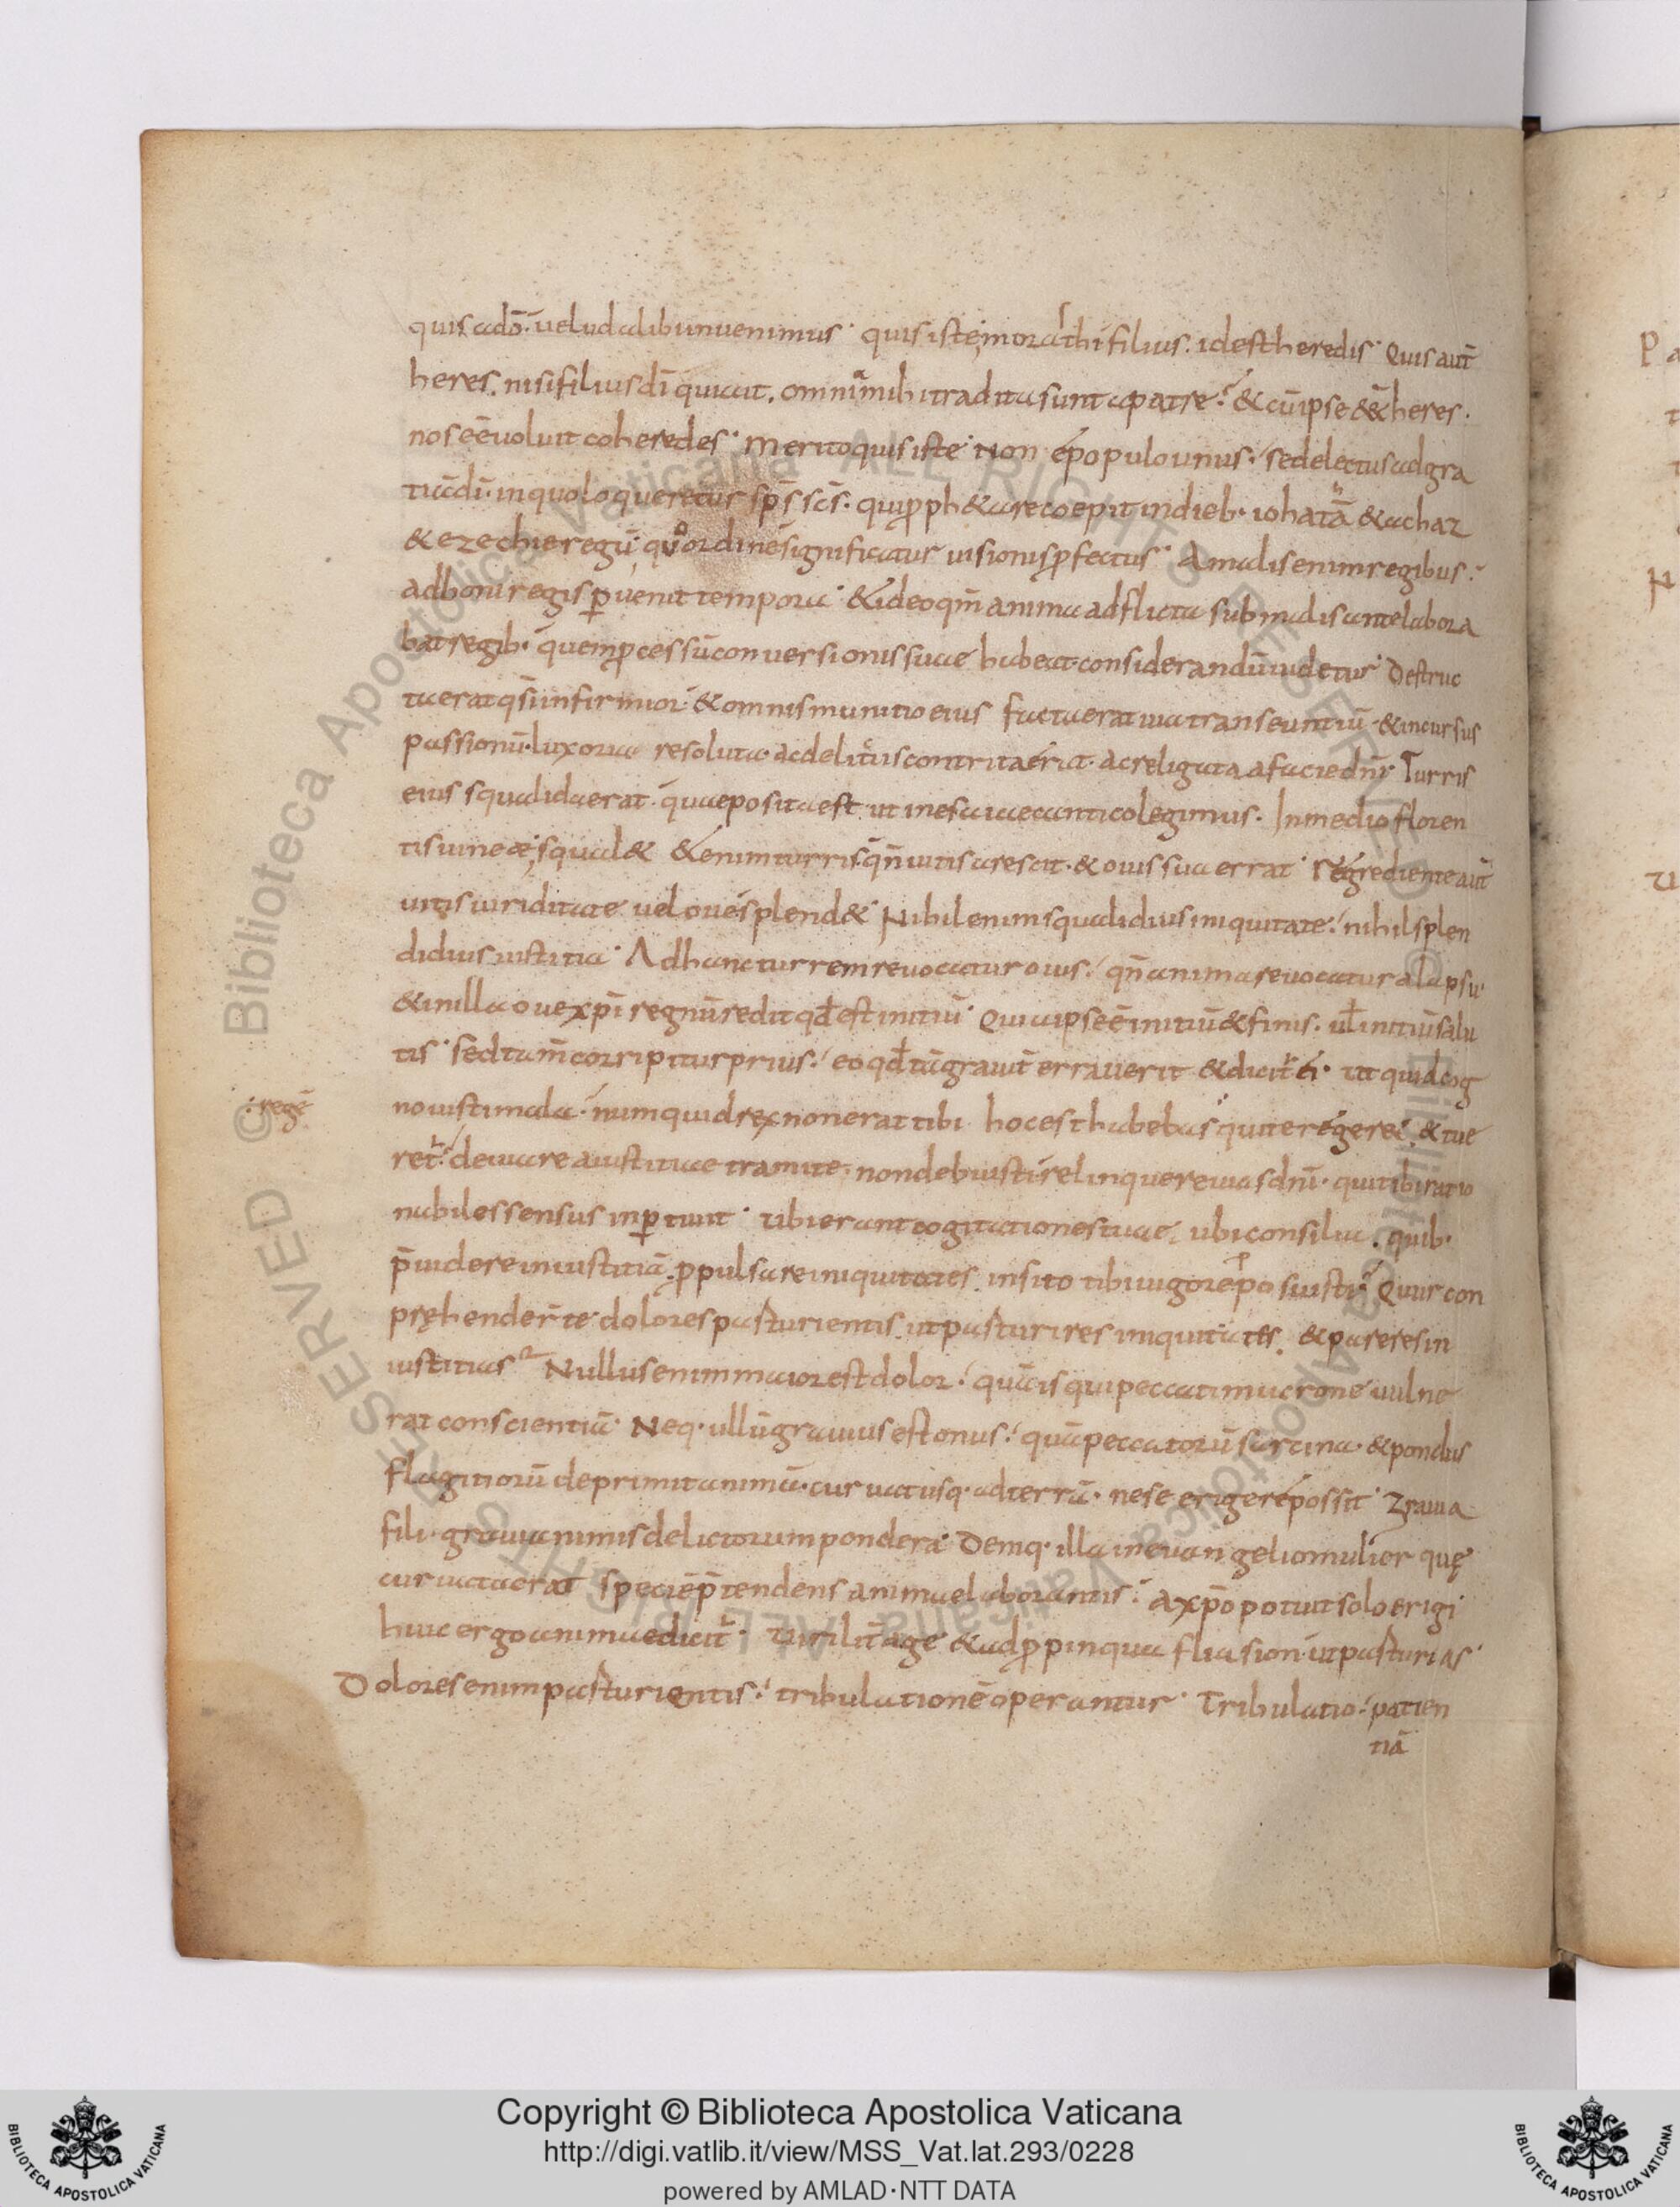 quis adō. uel ud alibi inuenimus. quis iste morasthi filius. id est heredis. Quis aut̄
heres. nisi filius dī qui ait. omnia mihi tradita sunt a patre. & cū ipse & heres.
nos eē uoluit coheredes. Merito quis iste. non é populo unus. sed electus ad gra
tiā dī. in quo loqueretur sp̄s sc̄s. qui proph&are coepit in dieb. iohatā & achaz
& ezechie regū. quo ordine significatur uisionis profectus. A malis enim regibus.
ad boni regis peruenit tempora. & ideo qm̄ anima adflicta sub malis ante labora
bat regib. quem processū conuersionis suae habeat considerandū uidetur. Destruc
ta erat qsi infirmior. & omnis munitio eius facta erat uia transeuntiū. & incursus
passionū. luxoria resoluta. ac delitiis contrita erat. ac religata a facie dn̄i. Turris
eius squalida erat. quae posita est. ut in esaiae cantico legimus. In medio floren
tis uineae squal& &enim turris qn̄ uitis arescit. & ouis sua errat. regrediente aut̄
uitis uiriditate uel oue splend&. Nihil enim squalidius iniquitate. nihil splen
didius iustitia. Ad hanc turrem reuocatur ouis. qn̄ anima reuocatur a lapsu
& in illa oue xp̄i regnū redit qd̄ est initiū. Quia ipse ē initiū & finis. ul̄ initiū salu
tis. sed tam̄ corripitur prius. eo qd̄ tā grauit̄ errauerit & dicit ei. ut quid cog
:regē
nouisti mala. numquid rex non erat tibi hoc est habebas qui te regeret. & tue
ret. deuiare a iustitiae tramite. non debuisti relinquere uias dn̄i. qui tibi ratio
nabiles sensus inpertiuit. ubi erant cogitationes tuae. ubi consilia. quib.
p̄uidere iniustitiā. propulsare iniquitates. insito tibi uigore potuisti. Quur con
pręhender̄ te dolores parturientis. ut parturires iniquitates. & pareres in
iustitias. Nullus enim maior est dolor. quā is qui peccati mucrone uulne
rat conscientiā. Neq. ullū grauius est onus. quā peccatorū sarcina. & pondus
flagitiorū deprimit animā. curuatusq. ad terrā. ne se erigere possit. Grauia
fili. grauia nimis delictorum pondera. Deniq. illa in euangelio mulier quę
curuata erat speciē p̄tendens animae laborantis. a xp̄o potuit solo erigi
huic ergo animae dicit. Uirilit̄ age & adpropinqua filia sion. ut parturias.
Dolores enim parturientis. tribulationē operantur. Tribulatio. patien
tiā
Copyright © Biblioteca Apostolica Vaticana
http://digi.vatlib.it/view/MSS_Vat.lat.293/0228
powered by AMLAD·NTT DATA
BIBLIOTECA APOSTOLICA VATICANA
BIBLIOTECA APOSTOLICA VATICANA